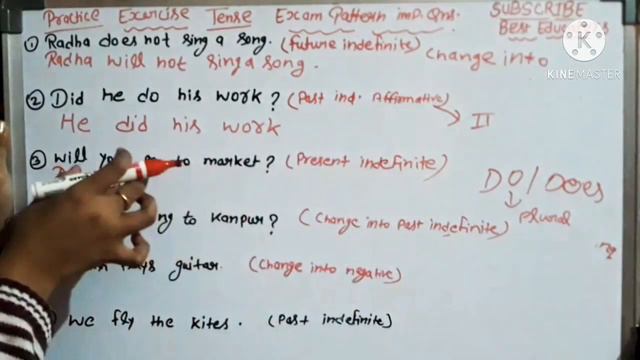 Practice Exercise Tense Exam Pattern imp. Qns.
SUBSCRIBE
Best Edu
KINEMASTER
① Radha does not sing a song. (future indefinite) change into
Radha will not sing a song.
② Did he do his work? (Past ind. Affirmative) → II
He did his work
③ Will to market? (Present indefinite)
DO/Does
↓ plural
to Kanpur? (Change into Past indefinite)
guitar. (Change into negative)
we fly the kites. (Past indefinite)